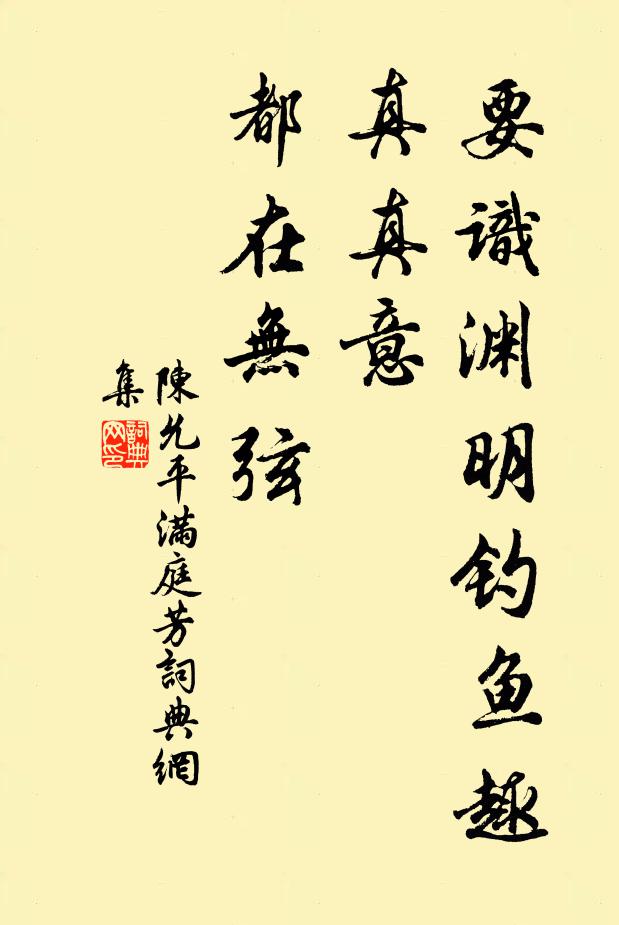 要識渊明钓鱼趣
真真意
都在無弦
陳允平滿庭芳詞典網
集
詞典
网印